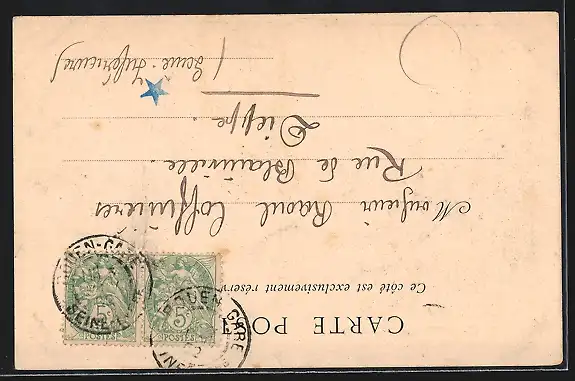 CARTE PO
Ce côté est exclusivement réserv
Monsieur Raoul Coffinières
Rue de Blainville.
Dieppe.
(Seine-Inférieure)
ROUEN-GARE
SEINE
5c
POSTES
ROUEN GARE
5c
POSTES